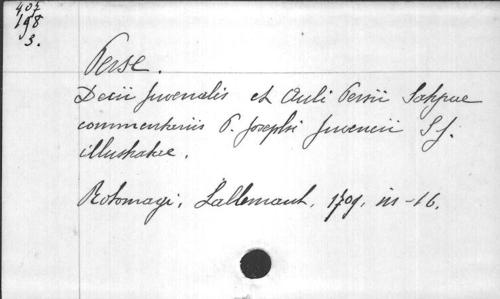 407
198
3.
Perse.
Decii Juvenalis et Auli Persii Satyrae
commentariis P. Josephi Juvencii S J.
illustratae.
Rotomagi, Lallemant, 1709. in-16.